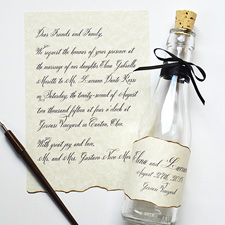 Dear Friends and Family,
We request the honour of your presence at
the marriage of our daughter Elma Gabrielle
Moretto to Mr. Luciano Dante Rossi
on Saturday, the twenty-second of August
two thousand fifteen at four o'clock at
Gervasi Vineyard in Canton, Ohio.
With great joy and love,
Mr. and Mrs. Gustavo Nico
Elma and
August 22nd, 2015
Gervasi Vineyard